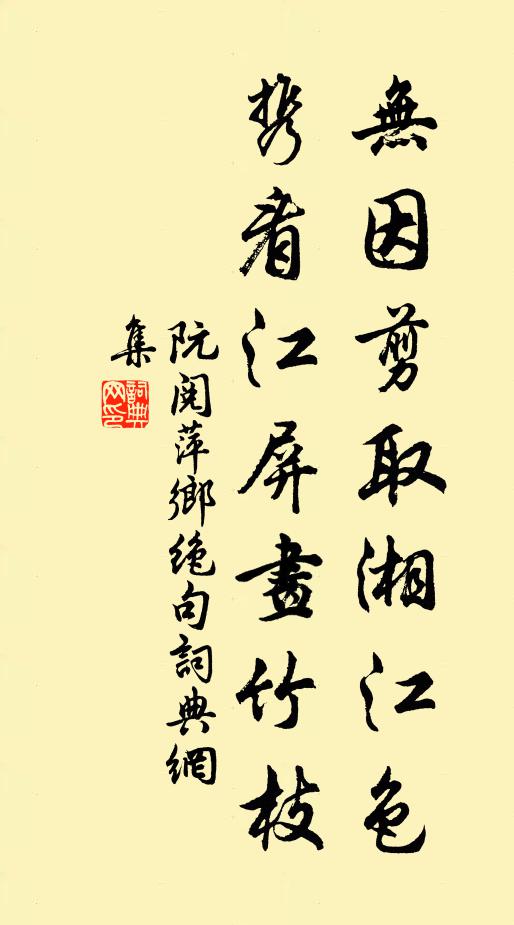 無因剪取湘江色
携看江屏畫竹枝
阮閱萍鄉絶句詞典網
集
詞典網印